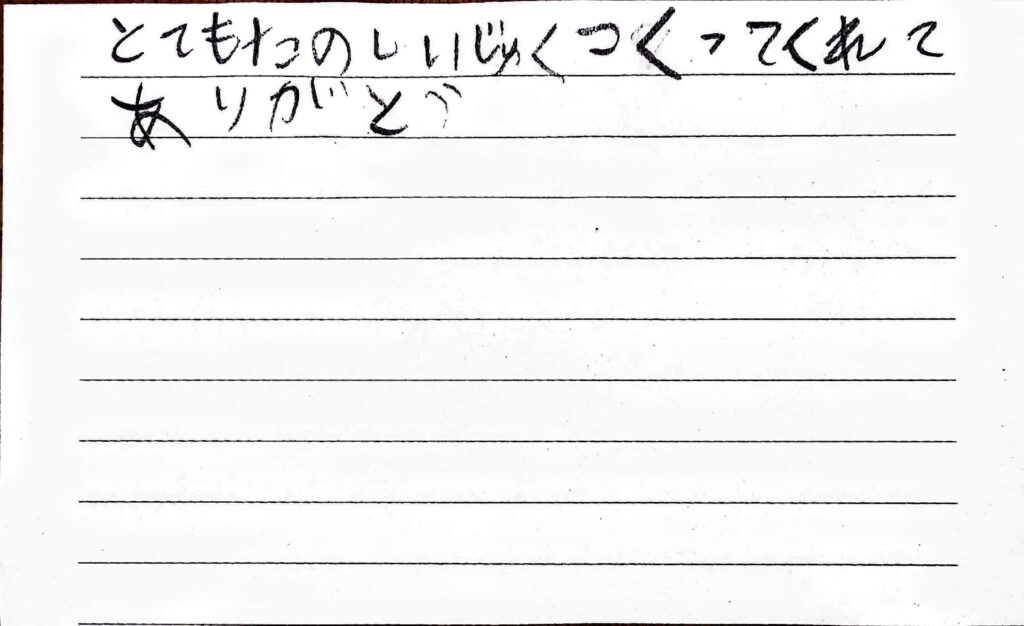 とてもたのしいじゅくつくってくれて
ありがとう